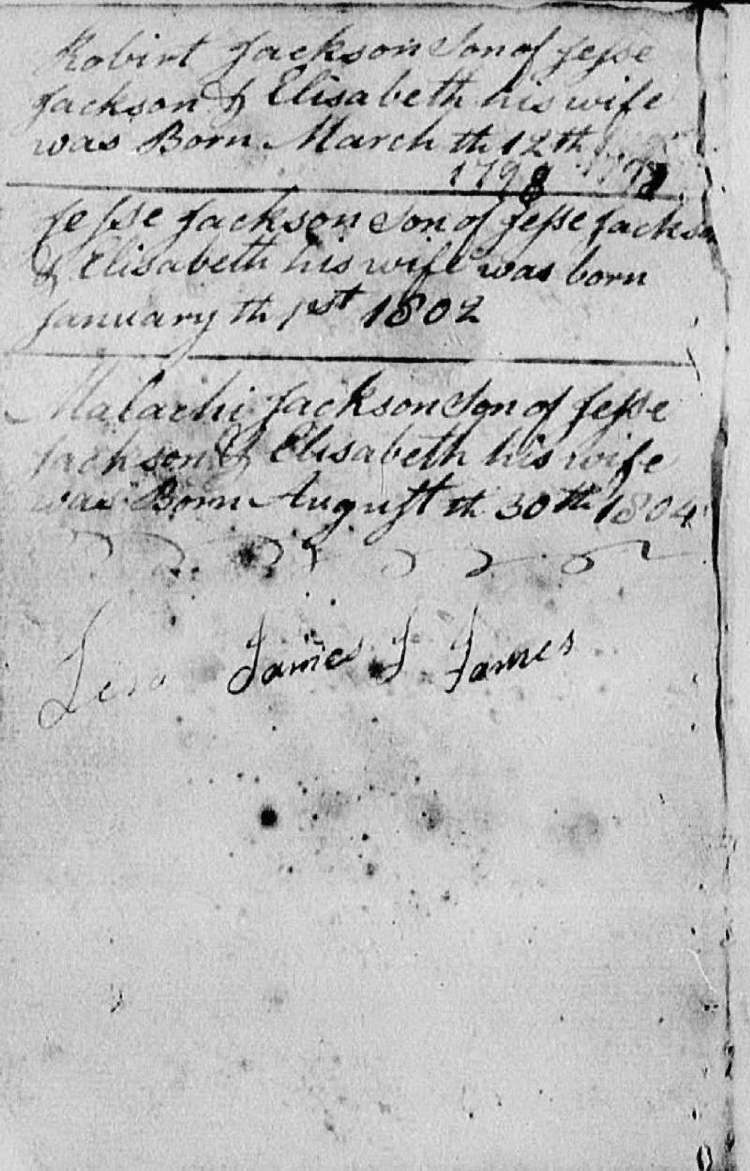 Robirt Jackson Son of Jeſse
Jackson & Elisabeth his wife
was Born March th 12th
1798 1798
Jeſse Jackson Son of Jeſse Jackson
& Elisabeth his wife was born
January th 1st 1802
Malachi Jackson Son of Jeſse
Jackson & Elisabeth his wife
was Born August th 30th 1804
James J James